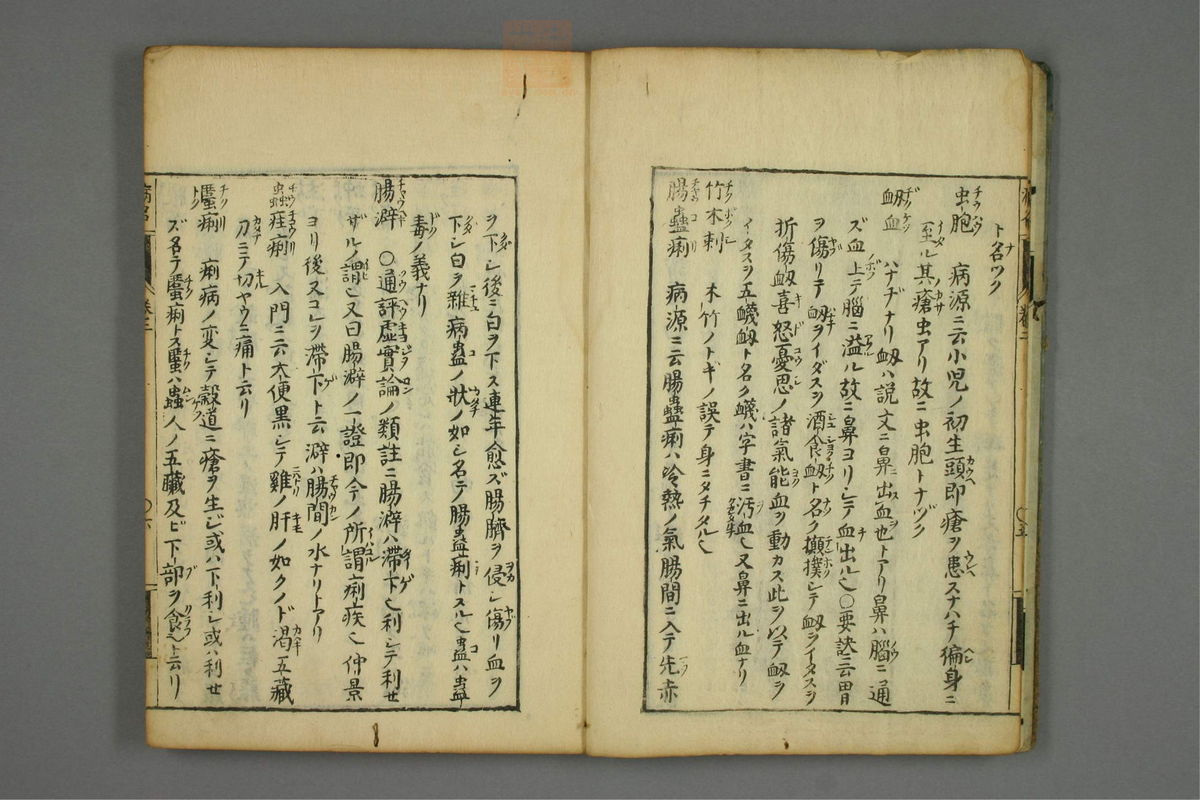 ト名ツク
虫胞 病源ニ云小児ノ初生頭即瘡ヲ患スナハチ徧身ニ
至ル其瘡虫アリ故ニ虫胞トナヅク
衂血 ハナヂナリ衂ハ説文ニ鼻出血也トアリ鼻ハ腦ニ通
ズ血上テ腦ニ溢ル故ニ鼻ヨリシテ血出ル也〇要訣ニ云胃
ヲ傷リテ衂ヲイダスヲ酒食衂ト名ク攧撲シテ衂ヲイタスヲ
折傷衂喜怒憂思ノ諸氣能血ヲ動カス此ヲ以テ衂ヲ
イタスヲ五衊衂ト名ク衊ハ字書ニ汚血也又鼻ニ出ル血ナリ
竹木刺 木竹ノトギノ誤テ身ニタチタル也
腸蠱痢 病源ニ云腸蠱痢ハ冷熱ノ氣腸間ニ入テ先赤
ヲ下シ後ニ白ヲ下ス連年愈ズ腸臍ヲ侵シ傷リ血ヲ
下シ白ヲ雜病蠱ノ状ノ如シ名テ腸蠱痢トスル也蠱ハ蠱
毒ノ義ナリ
腸澼 〇通評虚實論ノ類註ニ腸澼ハ滞下也利シテ利せ
ザルノ謂也又曰腸澼ノ一證即今ノ所謂痢疾也仲景
ヨリ後又コレヲ滞下ト云澼ハ腸間ノ水ナリトアリ
蟲疰痢 入門ニ云大便黒シテ雞ノ肝ノ如クノド渇五藏
刀ニテ切ヤウニ痛ト云リ
䘌痢 痢病ノ変シテ穀道ニ瘡ヲ生じ或ハ下利シ或ハ利せ
ズ名テ䘌痢トス䘌ハ蟲人ノ五臓及ビ下部ヲ食也ト云リ